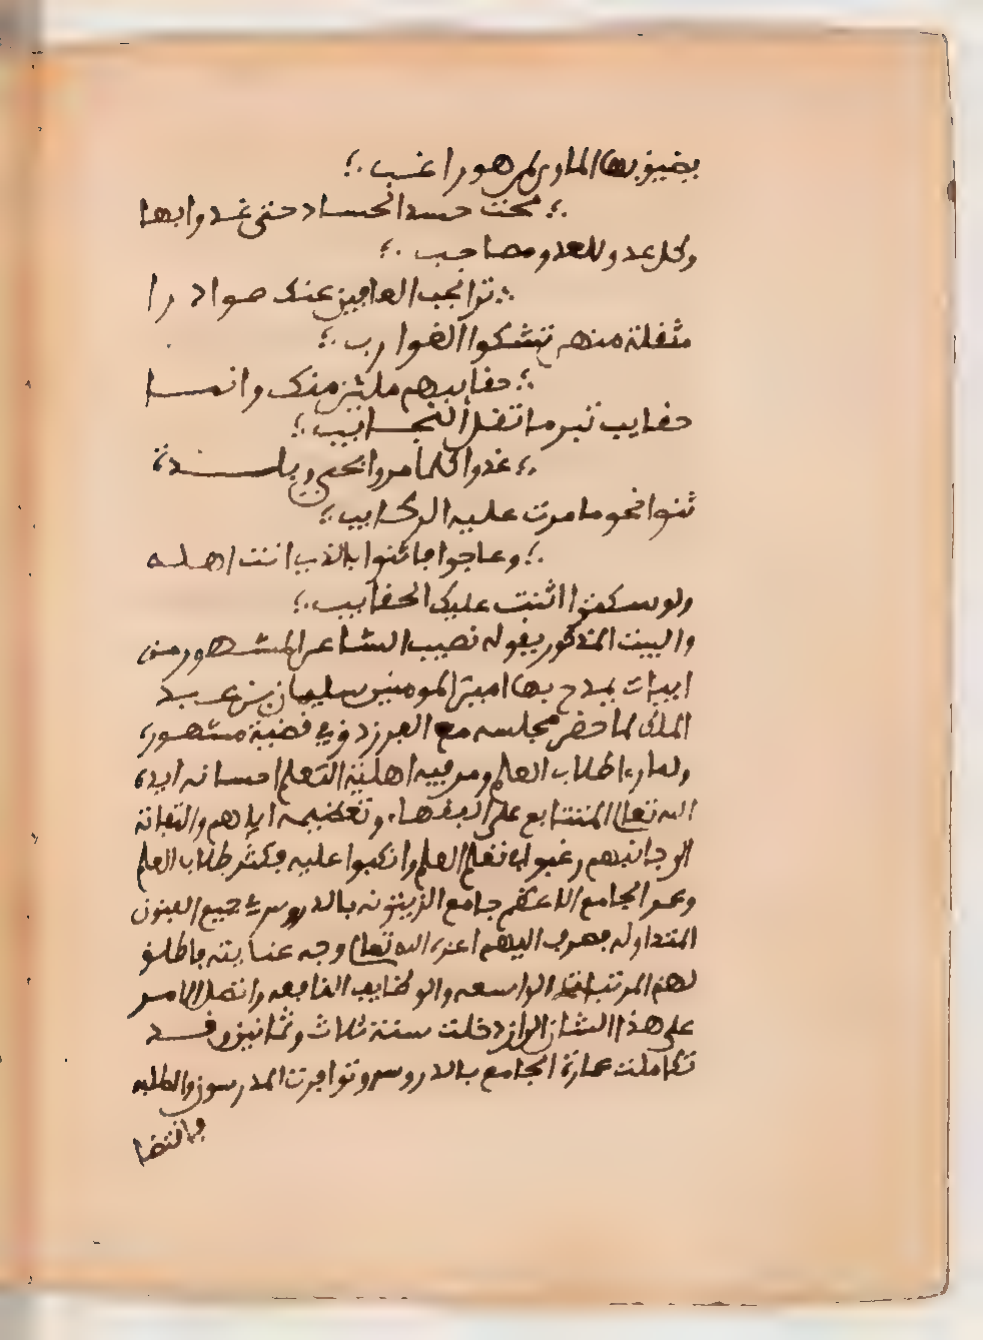 يضيق بها الماوى لمن هو راغب ؛
؛ محت حسد الحساد حتى غدوا بها
وكل عدو للعدو مصاحب ؛
؛ ترا نجب العافين عنك صوادرا
مثقلة منهم تشكوا الغوارب ؛
؛ حقايبهم ملئن منك وانمـا
حقايب تبر ما تقل النجـايب ؛
؛ غدوا كلما مروا بحي وبلــدة
ثنوا نحو ما مرت عليه الركايب ؛
؛ وعاجوا فاثنوا بالذي انت اهلـه
ولو سكتوا اثنت عليك الحقايب ؛
والبيت المذكور يقوله نصيب الشاعر المشهور من
ابيات يمدح بها امير المومنين سليمان بن عبـد
الملك لما حضر مجلسه مع الفرزدق في قضية مشهورة
ولما رءا طلاب العلم ومن فيه اهلية التعلم احسانه ايده
الله تعلى المتتابع على الفقهاء وتعظيمه اياهم والتفاته
الى جانبهم رغبوا في تعلم العلم وانكبوا عليه فكثر طلاب العلم
وعمر الجامع الاعظم جامع الزيتونه بالدروس في جميع الفنون
المتداوله فصرف اليهم اعزه الله تعلى وجه عنايته فاطلق
لهم المرتبات الواسعه والوظايف النافعه واتصل الامـر
على هذا الشان الى ان دخلت سنة ثلاث وثمانين وقــد
تكاملت عمارة الجامع بالدروس وتوافرت المدرسون والطلبه
فاقتضا